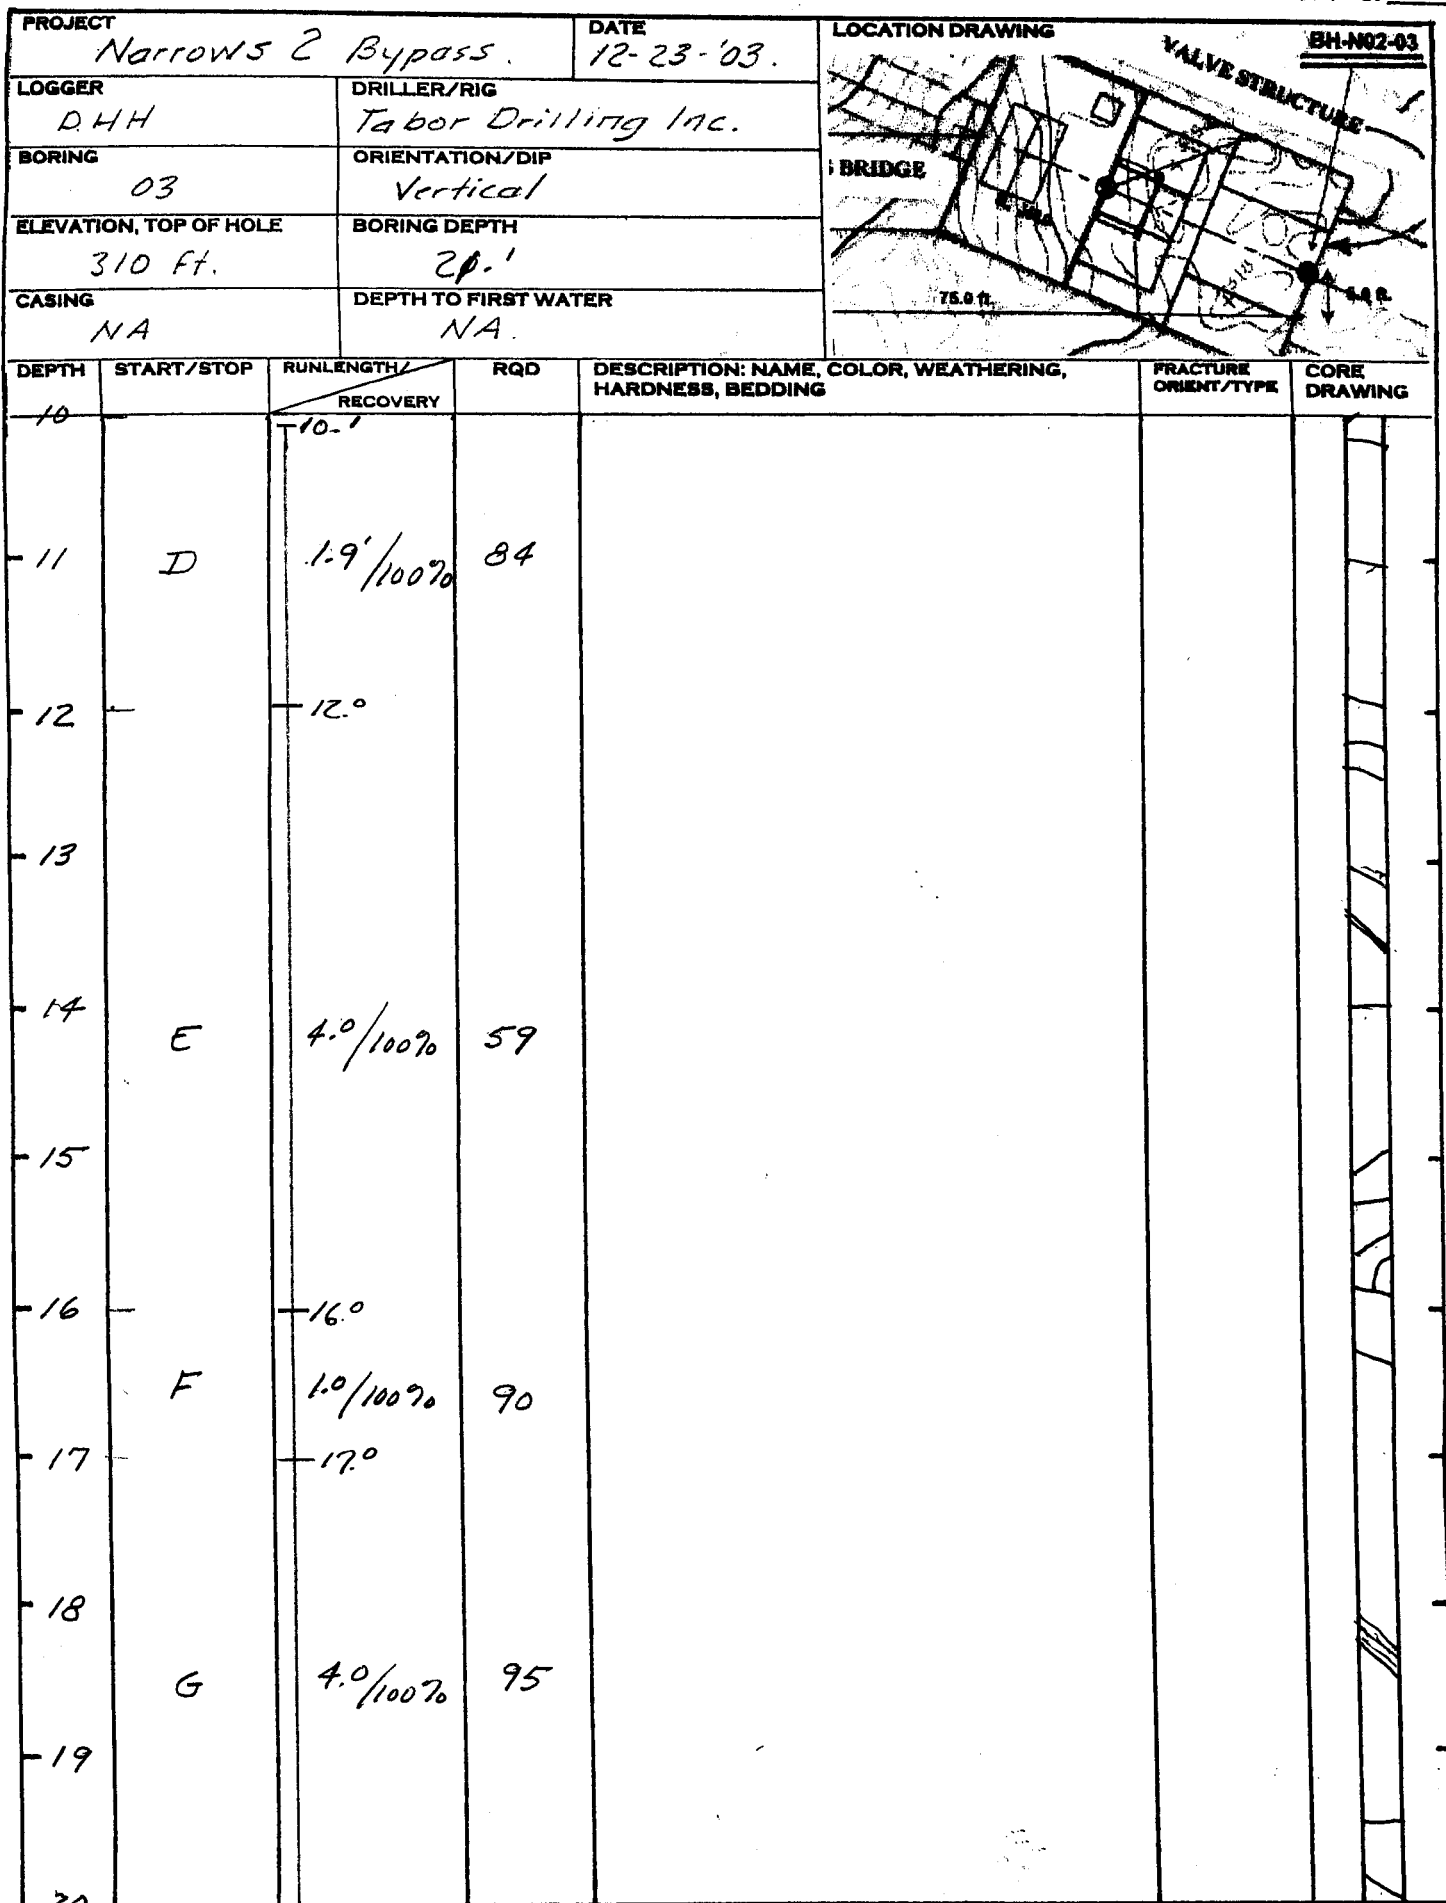 PROJECT
Narrows 2 Bypass.
DATE
12-23-'03.
LOCATION DRAWING
BH-N02-03
VALVE STRUCTURE
BRIDGE
75.0 ft.
LOGGER
D.H.H
DRILLER/RIG
Tabor Drilling Inc.
BORING
03
ORIENTATION/DIP
Vertical
ELEVATION, TOP OF HOLE
310 ft.
BORING DEPTH
CASING
NA
DEPTH TO FIRST WATER
NA.
DEPTH START/STOP RUNLENGTH/ RECOVERY RQD DESCRIPTION: NAME, COLOR, WEATHERING, HARDNESS, BEDDING FRACTURE ORIENT/TYPE CORE DRAWING
10
10.1
11 D 1.9'/100% 84
12 12.0
13
14
E 4.0/100% 59
15
16 16.0
F 1.0/100% 90
17 17.0
18
G 4.0/100% 95
19